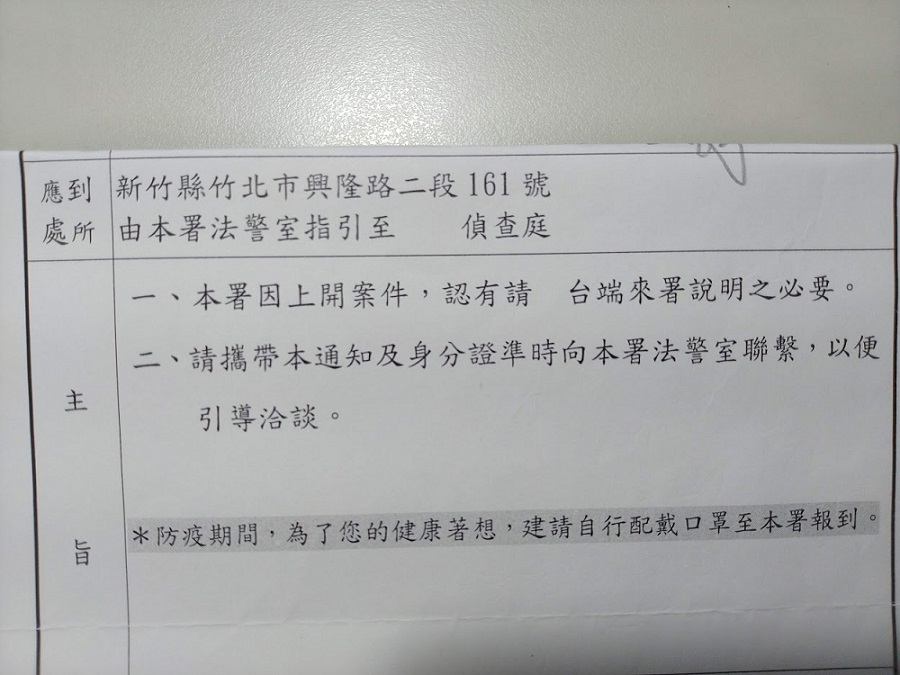 應到處所
新竹縣竹北市興隆路二段161號
由本署法警室指引至 偵查庭
主旨
一、本署因上開案件，認有請 台端來署說明之必要。
二、請攜帶本通知及身分證準時向本署法警室聯繫，以便
引導洽談。
＊防疫期間，為了您的健康著想，建請自行配戴口罩至本署報到。